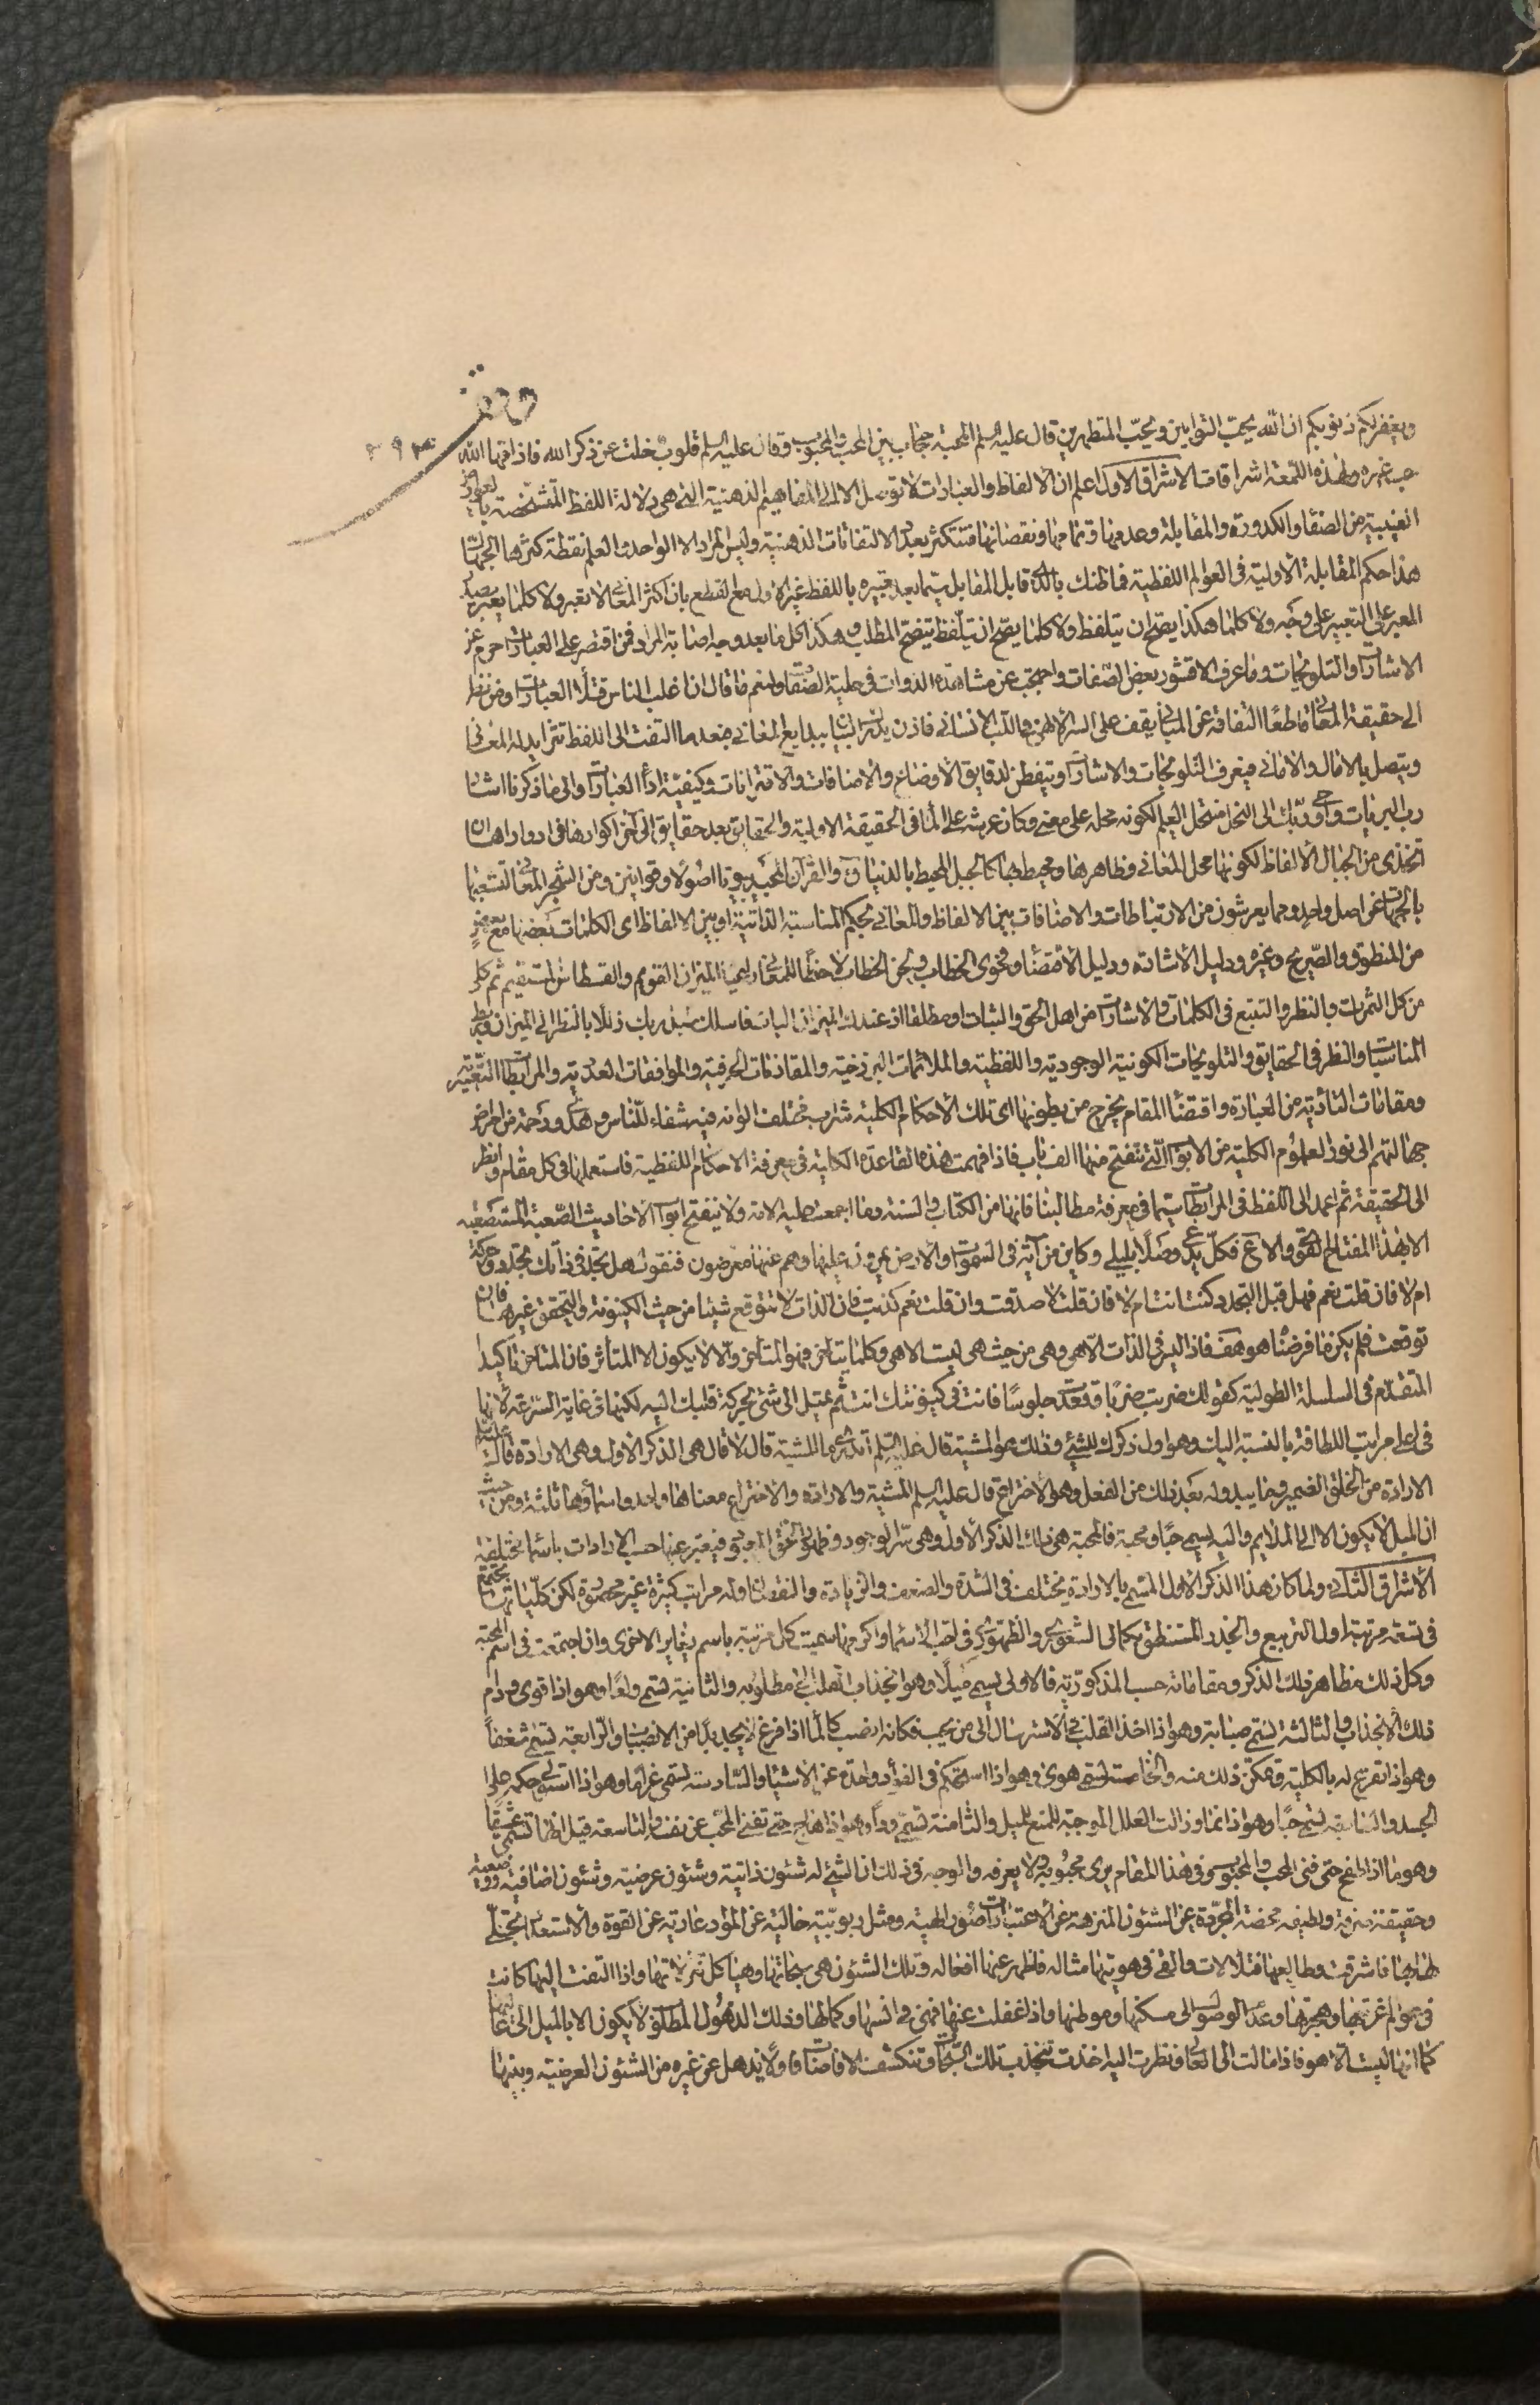 ويغفر لكم ذنوبكم ان الله يحبّ التوابين ويحبّ المتطهرين قال عليه السلم المحبة حجاب بين المحب والمحبوب وقال عليه السلم قلوب خلت عن ذكر الله فاذاقها الله
حب غيره ولهذه اللمعة اشراقات الاشراق الاول اعلم ان الالفاظ والعبارات لا توصل الا الى المفاهيم الذهنية التى هى دلالة اللفظ المتشخصة
الغيبية من الصفاء والكدورة والمقابلة وعدمها وتمامها ونقصانها فتتكثر بعد الالتفاتات الذهنية وليس المراد الا الواحد والعلم نقطة كثرها الجهال
هذا حكم المقابلة الاولية فى العوالم اللفظية فما ظنك بالذى قابل المقابل سيما بعد تعبيره باللفظ غير الاول مع القطع بان اكثر المعانى لا تعبر ولا كلما يعبر
المعبر على التعبير على وجه ولا كلما هكذا يصح ان يتلفظ ولا كلما يصح ان يتلفظ يتضح المطلب وهكذا كل ما بعد وجه اصابة المراد فمن اقتصر على العبارات احرم عن
الاشارات والتلويحات وما عرف الا قشور بعض الصفات واحتجب عن مشاهدة الذوات فى حلية الصفاء ولنعم ما قال ان اغلب الناس قتلة العبارات ومن نظر
الى حقيقة المعانى قاطعا التفاته عن المبانى يقف على السر الالهى واللب الانسانى فاذن يدرك البيان ببدايع المعانى فبعد ما التفت الى اللفظ تترايد له المعانى
ويتصل بالامال والامانى فيعرف التلويحات والاشارات ويتفطن لدقايق الاوضاع والاضافات والاقترانات وكيفية اداء العبارات والى ما ذكرنا اشار
رب البريات واوحى ربك الى النحل نحل العلم لكونه محله على معنى وكان عرشه على الماء فى الحقيقة الاولية والحقايق بعد حقايق الى آخر اكوارها فى ادوارها ان
اتخذى من الجبال الالفاظ لكونها محل المعانى وظاهرها ومحيط بها كالجبل المحيط بالدنيا ق والقرآن المجيد بيوتا اصولا وقوانين ومن الشجر المعانى لتشعبها
بالجهات عن اصل واحد ومما يعرشون من الارتباطات والاضافات بين الالفاظ والمعانى بحكم المناسبة الذاتية او بين الالفاظ اى الكلمات بعضها مع بعض
من المنطوق والصريح وغيره ودليل الاشارة ودليل الاقتضاء وفحوى الخطاب ولحن الخطاب الميزان القويم والقسطاس المستقيم ثم كلى
من كل الثمرات بالنظر والتتبع فى الكلمات والاشارات من اهل الحق والثبات او مطلقا اذ عندك الميزان فاسلك سبل ربك ذللا بالنظر الى الميزان
المناسبات والنظر فى الحقايق والتلويحات الكونية الوجودية واللفظية والملائمات البرزخية والمقارنات الحرفية والموافقات العددية
ومقامات التأدية من العبارة واقتضاء المقام يخرج من بطونها اى تلك الاحكام الكلية شراب مختلف الوانه فيه شفاء للناس وهدى ورحمة من امراض
جهالتهم الى نور العلوم الكلية من الابواب التى تنفتح منها الف باب فاذا فهمت هذه القاعدة الكلية فى معرفة الاحكام اللفظية فاستعملها فى كل مقام وانظر
الى الحقيقة ثم اعمد الى اللفظ فى المراتب سيما فى معرفة مطالبنا فانها من الكتاب والسنة وما اجمعت عليه الامة ولا ينفتح ابواب الاحاديث الصعبة المستصعبة
الا بهذا المفتاح وكل يدعى وصلا بليلى وكاين من آية فى السموات والارض يمرون عليها وهم عنها معرضون فنقول هل تجد فى ذاتك تجدد وحركة
ام لا فان قلت نعم فهل قبل التجدد كنت انت ام لا فان قلت لا صدقت وان قلت نعم كذبت فان الذات لا تتوقع شيئا من حيث الكينونة والتحقق غيرها فان
توقعت فلم يكن ما فرضناه هو هف فاذا ليس فى الذات الا هى وهى من حيث هى ليست الا هى وكلما يتاخر فهو المتاخر والا لا يكون الا المتأثر فان المتاخر تاكيد
المتقدم فى السلسلة الطولية كقولك ضربت ضربا وقعدت جلوسا فانت فى كينونتك انت ثم تميل الى شئ بحركة قلبك اليه لكنها فى غاية السرعة لانها
فى اعلى مراتب اللطافة بالنسبة اليك وهو اول ذكرك للشئ وذلك هو المشية قال عليه السلم تدرى ما المشية قال لا قال هى الذكر الاول وهى الارادة قال عليه السلم
الارادة من الخلق الضمير وما يبدو له بعد ذلك من الفعل وهو الاختراع قال عليه السلم المشية والارادة والاختراع معناها واحد واسماؤها ثلثة ومن حيث
ان الميل لا يكون الا الى الملايم واليه يسمى حبا ومحبة فالمحبة هى ذلك الذكر الاول وهى سر الوجود فيعبر عنها حسب الارادات باسماء مختلفة
الاشراق الثانى ولما كان هذا الذكر الاول المسمى بالارادة يختلف فى الشدة والضعف والزيادة والنقصان وله مراتب كثيرة غير محصورة لكن كلياتها تجتمع
فى تسعة مرتبة اولها التربيع والجذر المستنطق بكمالى الشعورى والظهورى فى لقب الاسماء واكرمها سميت كل مرتبة باسم يغاير الاخرى وان اجتمعت فى اسم المحبة
وكل ذلك مظاهر ذلك الذكر ومقاماته حسب المذكورية فالاولى يسمى ميلا وهو انجذاب القلب الى مطلوبه والثانية تسمى ولعا وهو اذا قوى ودام
ذلك الانجذاب والثالثة تسمى صبابة وهو اذا اخذ القلب فى الاسترسال الى من يحب فكانه انصب كالماء اذا فرغ لا يجد بدا من الانصباب والرابعة تسمى شغفا
وهو اذا تفرغ له بالكلية وتمكن ذلك منه والخامسة تسمى هوى وهو اذا استحكم فى الفؤاد واخذه عن الاشياء والسادسة تسمى غراما وهو اذا استولى حكمه على
الجسد والسابعة تسمى حبا وهو اذا نما وزالت العلل الموجبة للمنع للميل والثامنة تسمى ودا وهو اذا هاج حتى تفنى المحب عن نفسه والتاسعة تسمى عشقا
وهو ما اذا طفح حتى فنى المحب والمحبوب وفى هذا المقام يرى محبوبه ولا يعرفه والوجه فى ذلك ان الشئ له شئون ذاتية وشئون عرضية وشئون اضافية
وحقيقة صرفة ولطيفة محضة المجردة عن الشئون المنزهة عن الاعتبارات صور الهية ومثل ربوبية خالية عن المواد عارية عن القوة والاستعداد تجلى
لها بها فاشرقت وطالعها فتلألات والقى فى هويتها مثاله فاظهر عنها افعاله وتلك الشئون هى سبحاتها وهياكل تنزلاتها واذا التفت اليها كانت
فى عوالم غربتها وهجرتها وعدم الوصول الى مسكنها وموطنها واذا غفلت عنها فهى فى انسها وكمالها وذلك الذهول المطلق لا يكون الا بالميل الى
كما انها ليست الا هو فاذا مالت الى العالى ونظرت اليه اخذت تنجذب تلك السبحات وتنكشف الاضافات فاولا يذهل عن غيره من الشئون العرضية وبينها